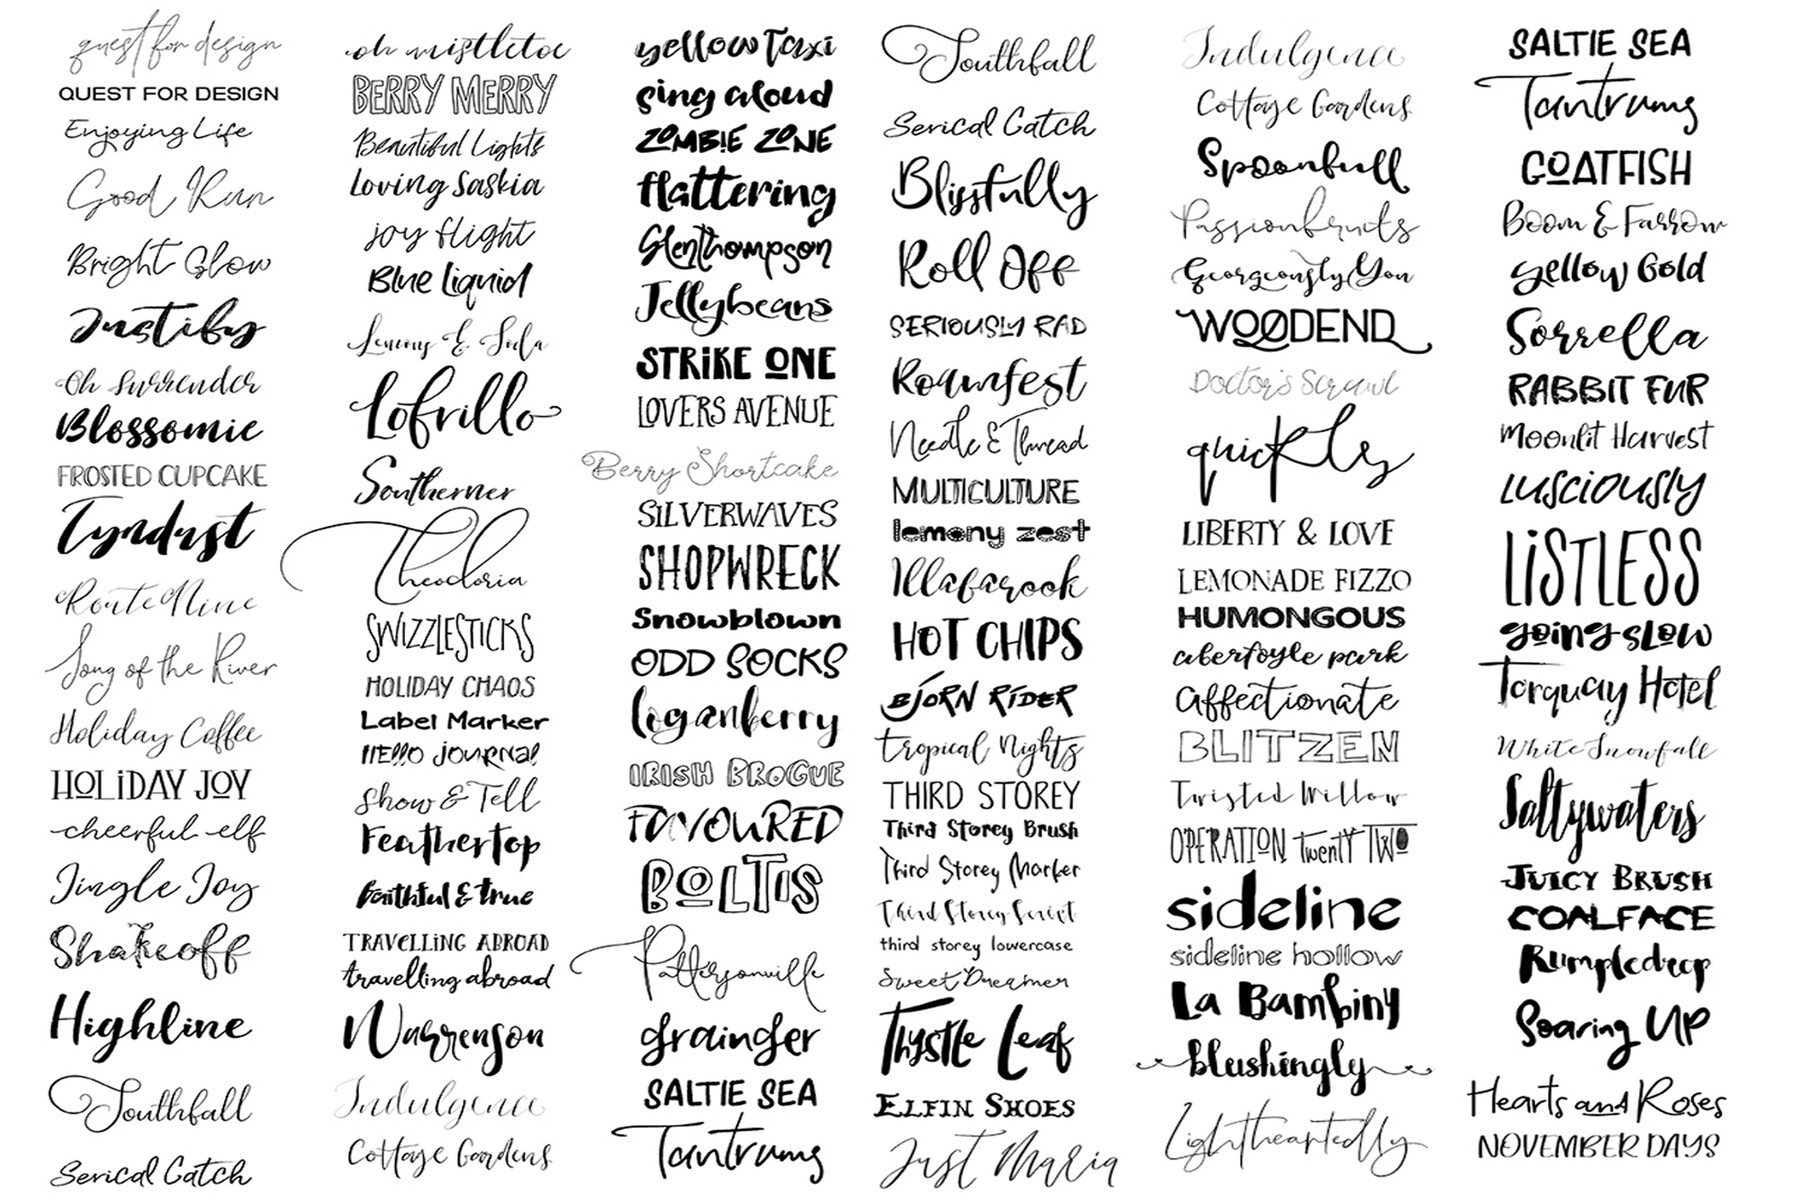 quest for design
QUEST FOR DESIGN
Enjoying Life
Good Run
Bright Glow
Justify
Oh Surrender
Blossomie
FROSTED CUPCAKE
Tyndust
Route Nine
Song of the River
Holiday Coffee
HOLiDAY JOY
cheerful elf
Jingle Joy
Shakeoff
Highline
Southfall
Serical Catch
oh mistletoe
BERRY MERRY
Beautiful Lights
Loving Saskia
joy flight
Blue Liquid
Lemons & Soda
Lofrillo
Southerner
Theodoria
SWIZZLESTICKS
HOLIDAY CHAOS
Label Marker
HEllO JOURNal
Show & Tell
Feathertop
faithful & true
TRAVELLiNG ABROAD
travelling abroad
Warrenson
Indulgence
Cottage Gardens
yellow Taxi
sing aloud
ZOMBIE ZONE
flattering
Glenthompson
Jellybeans
STRiKE ONE
LOVERS AVENUE
Berry Shortcake
SiLVERWAVES
SHOPWRECK
Snowblown
ODD SOCKS
loganberry
IRISH BROGUE
FAVOURED
BOLTiS
Pattersonville
grainger
SALTIE SEA
Tantrums
Southfall
Serical Catch
Blissfully
Roll Off
SERIOUSLY RAD
Roamfest
Needle & Thread
MULTICULTURE
lemony zest
Illafarook
HOT CHIPS
BJORN RIDER
tropical nights
THIRD STOREY
Third Storey Brush
Third Storey Marker
Third Storey Script
third storey lowercase
Sweet Dreamer
Thystle Leaf
ELFIN SHOES
Just Maria
Indulgence
Cottage Gardens
Spoonfull
Passionfruits
Georgeously You
WOODEND
Doctor's Scrawl
quickly
LIBERTY & LOVE
LEMONADE FIZZO
HUMONGOUS
aberfoyle park
affectionate
BLITZEN
Twisted Willow
OPERATION TwenTY TWO
sideline
sideline hollow
La Bambiny
blushingly
Lightheartedly
SALTIE SEA
Tantrums
GOATFISH
Boom & Farrow
yellow Gold
Sorrella
RABBIT FUR
Moonlit Harvest
LUSCIOUSLY
LiSTLESS
going slow
Torquay Hotel
White Snowfall
Saltywaters
JUICY BRUSH
COALFACE
Rumpledrop
Soaring UP
Hearts and Roses
NOVEMBER DAYS